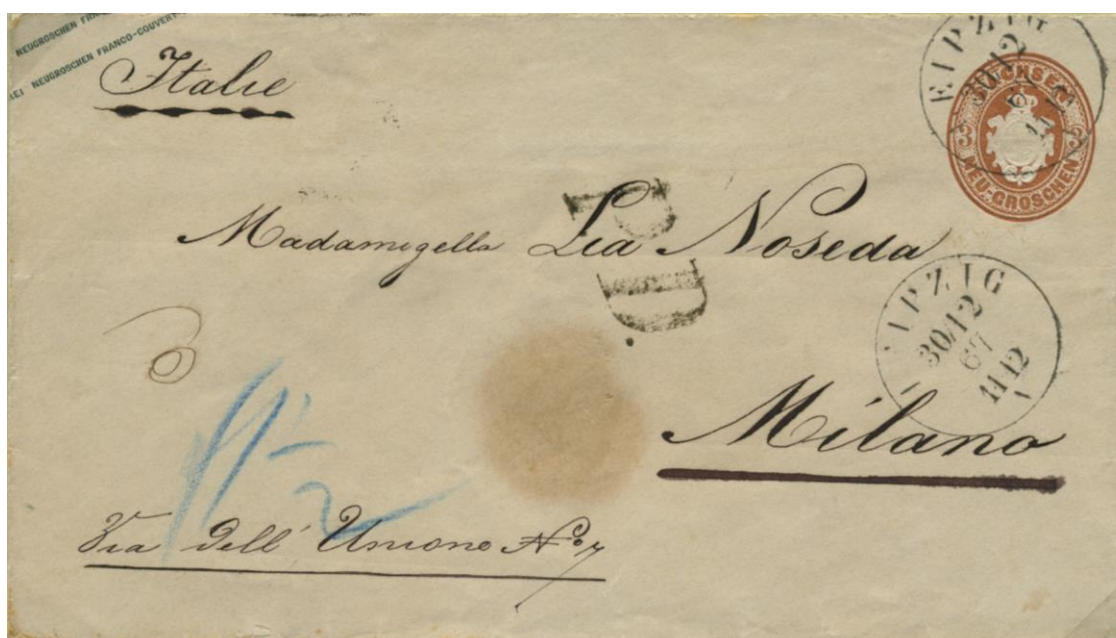 NEUGROSCHEN FRAN
EI NEUGROSCHEN FRANCO-COUVERT
Italie
LEIPZIG
30/12
67
11-12
SACHSEN
3 3
NEU-GROSCHEN
P.D.
Madamigella Lia Noseda
LEIPZIG
30/12
67
11-12
V
Milano
Via Dell' Unione No. 7